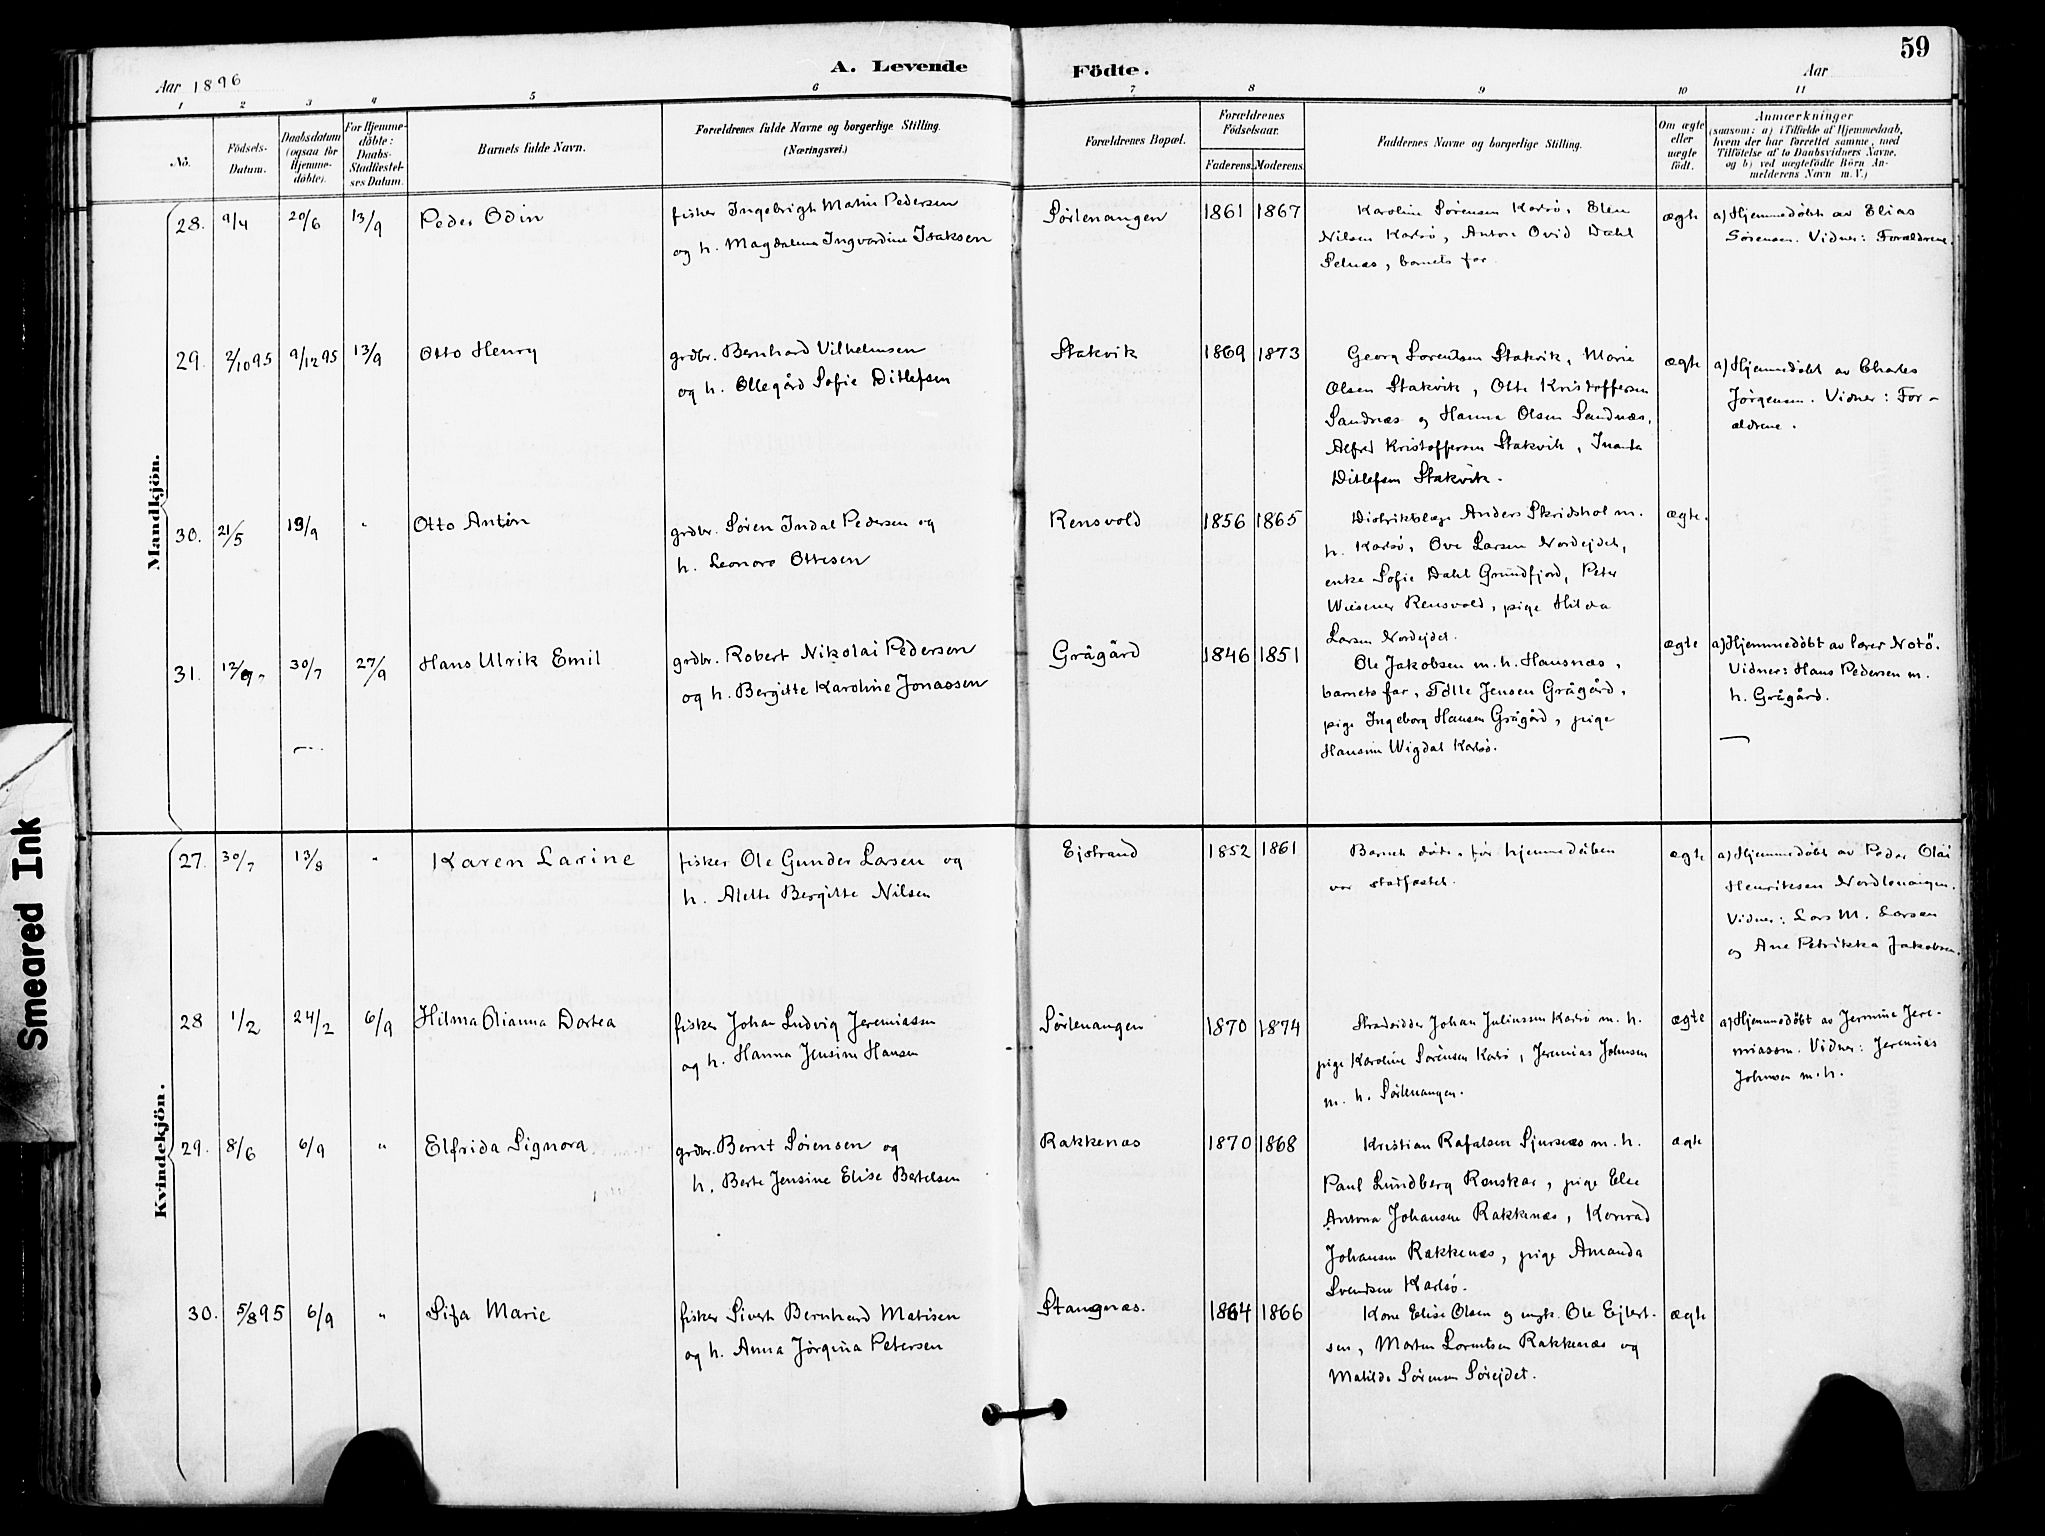 59
Aar 1896
A. Levende
Födte.
Aar
1 2 3 4 5 6 7 8 9 10 11
No.
Födsels-
Datum.
Daabsdatum
(ogsaa for
Hjemme-
döbte).
For Hjemme-
döbte:
Daabs-
Stadfæstel-
ses Datum.
Barnets fulde Navn.
Forældrenes fulde Navne og borgerlige Stilling.
(Næringsvei.)
Forældrenes Bopæl.
Forældrenes
Födselsaar.
Faderens. Moderens.
Faddernes Navne og borgerlige Stilling.
Om ægte
eller
uægte
födt.
Anmærkninger
(saasom: a) i Tilfælde af Hjemmedaab,
hvem der har forrettet samme, med
Tilföielse af to Daabsvidners Navne,
og b) ved uægtefödte Börn An-
melderens Navn m. V.)
Mandkjön.
28. 9/4 20/6 13/9 Peder Odin
fisker Ingebrigt Matin Pedersen
og h. Magdalena Ingvardine Isaksen
Sørlenangen 1861 1867
Karoline Sørensen Karlsø, Elen
Nilsen Karlsø, Anton Ovid Dahl
Selnæs, barnets far
ægte
a) Hjemmedøbt av Elias
Sørensen. Vidner: Forældrene.
29. 2/10 95 9/12 95 13/9 Otto Henry
grdbr. Bernhard Vilhelmsen
og h. Ollegård Sofie Ditlefsen
Stakvik 1869 1873
Georg Lorentsen Stakvik, Marie
Olsen Stakvik, Otte Kristoffersen
Sandnæs og Hanna Olsen Sandnæs,
Alfred Kristoffersen Stakvik,
Ditlefsen Stakvik.
ægte
a) Hjemmedøbt av Charles
Jørgensen. Vidner: For-
ældrene.
30. 21/5 19/9 " Otto Antón
grdbr. Søren Indal Pedersen og
h. Leonora Ottesen
Rensvold 1856 1865
Distriktslæge Anders Skridshol m.
h. Karlsø, Ove Larsen Nordejdet,
enke Sofie Dahl Grundfjord, Peter
Wiesener Rensvold, pige Hilda
Larsen Nordejdet.
ægte.
31. 12/7 30/7 27/9 Hans Ulrik Emil
grdbr. Robert Nikolai Pedersen
og h. Bergitte Karoline Jonassen
Grågård 1846 1851
Ole Jakobsen m. h. Hansnæs,
barnets far, Tølle Jensen Grågård,
pige Ingeborg Hansen Grågård, pige
Hansine Wigdal Karlsø.
ægte
a) Hjemmedøbt av lærer Notö.
Vidner: Hans Pedersen m.
h. Grågård.
Kvindekjön.
27. 30/7 13/8 " Karen Larine
fisker Ole Gunder Larsen og
h. Alette Bergitte Nilsen
Ejstrand 1852 1861
Barnet døde, før hjemmedåben
var stadfæstet.
ægte
a) Hjemmedøbt av Peder Olai
Henriksen Nordlenangen.
Vidner: Lars M. Larsen
og Ane Petrikka Jakobsen.
28 1/2 24/2 6/9 Hilma Olianna Dortea
fisker Johan Ludvig Jeremiassen
og h. Hanna Jensine Hansen
Sørlenangen 1870 1874
Strandsidder Johan Juliussen Karlsø m. h.
pige Karoline Sørensen Karlsø, Jeremias Johnsen
m. h. Sørlenangen.
ægte
a) Hjemmedøbt av Jermine Jere-
miassen. Vidner: Jeremias
Johnsen m. h.
29. 8/6 6/9 " Elfrida Signora
grdbr. Bernt Sørensen og
h. Berte Jensine Elise Bertelsen
Rakkenæs 1870 1868
Kristian Rafalsen Sjursnæs m. h.
Paul Lundberg Rønskar, pige Else
Antona Johansen Rakkenæs, Konrad
Johansen Rakkenæs, pige Amanda
Svendsen Karlsø.
ægte
30. 5/8 95 6/9 " Sifa Marie
fisker Sivert Bernhard Matisen
og h. Anna Jørgina Petersen
Stangnæs. 1864 1866
Kone Elise Olsen og ungk. Ole Ejlert-
sen, Morten Lorentsen Rakkenæs og
Matilde Sørensen Sørejdet.
ægte
Smeared Ink